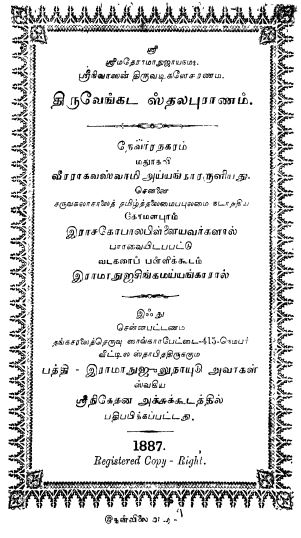 ஸ்ரீ
ஸ்ரீமதேராமாநுஜாயநம:
ஸ்ரீநிவாஸன் திருவடிகளேசரணம்.
திருவேங்கட ஸ்தலபுராணம்.
தேவார்நகரம்
மதுரகவி
வீரராகவஸ்வாமி அய்யங்காரருளியது.
சென்னை
சருவகலாசாலைத் தமிழ்த்தலைமைப்புலமை நடாத்திய
கோமளபுரம்
இராசகோபாலபிள்ளையவர்களால்
பார்வையிடப்பட்டு
வடகரைப் பள்ளிக்கூடம்
இராமாநுஜசிங்கமய்யங்காரால்
இஃது
சென்னபட்டணம்
தங்கசாலைத்தெருவு 415-நெம்பர்
வீட்டில் ஸ்தாபித்திருக்கும்
பத்தி - இராமாநுஜுலுநாயுடு அவர்கள்
ஸ்வீய
ஸ்ரீநிகேதன அச்சுக்கூடத்தில்
பதிப்பிக்கப்பட்டது.
1887.
Registered Copy - Right.
இதன்விலை